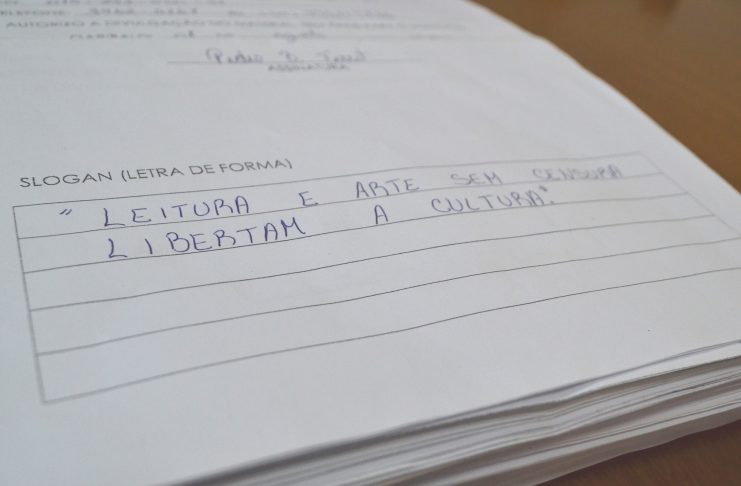 AUTORIZO A DIVULGAÇÃO
ASSINATURA
SLOGAN (LETRA DE FORMA)
" LEITURA E ARTE SEM CENSURA
LIBERTAM A CULTURA."